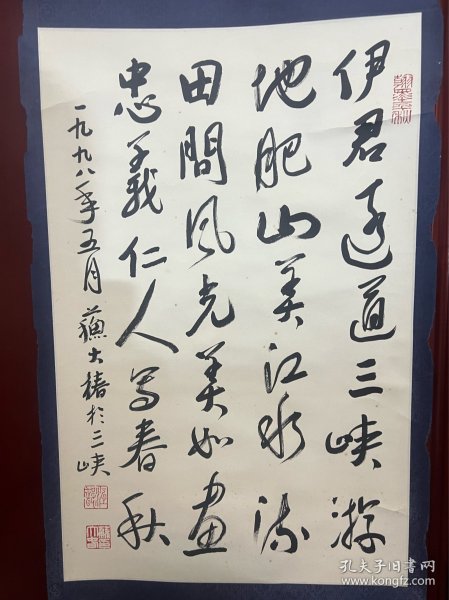 伊君遠道三峡游
地肥山美江水流
田間风光美如画
忠義仁人写春秋
一九九八年五月 蘇大椿於三峡
孔夫子旧书网
www.kongfz.com